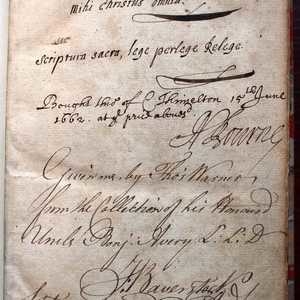 mihi Christus omnia.
Scriptura sacra, lege perlege Relege.
Bought this of C Thimelton 15th June
1662. at ye price above
Bourne
Given me by Thos Warner
from the Collection of his Honoured
Uncle Benj: Avery L:L:D